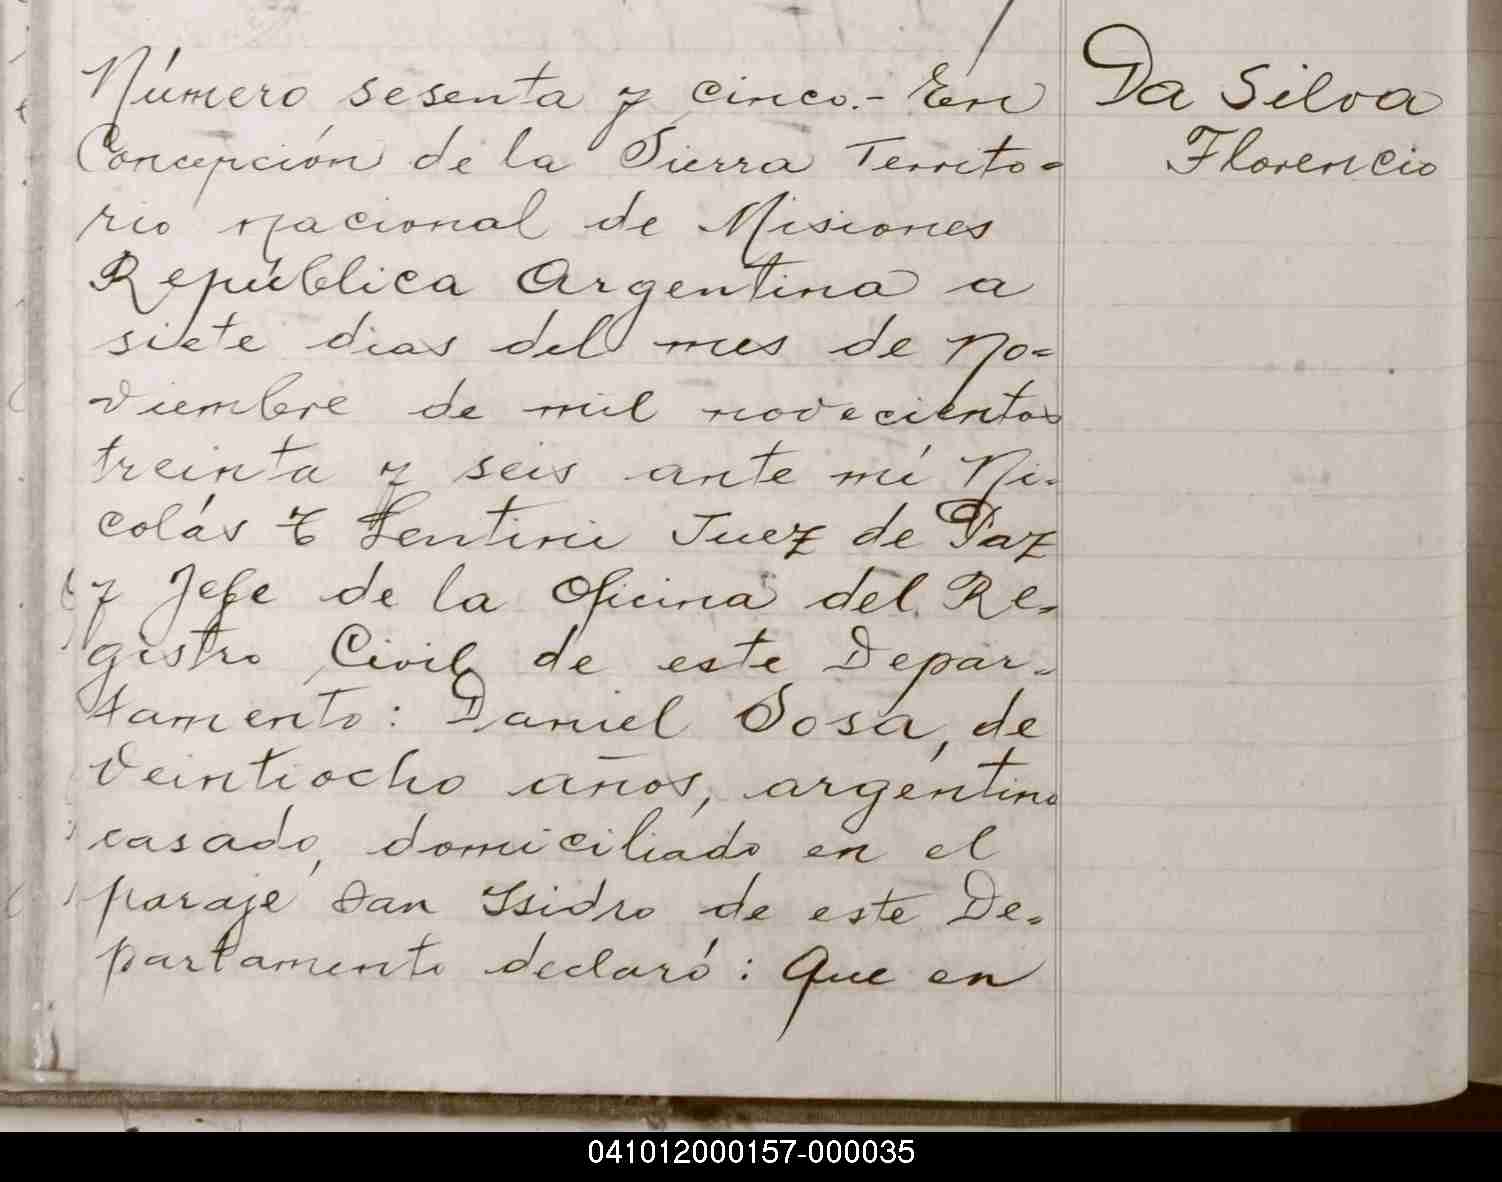 Número sesenta y cinco.- En
Concepción de la Sierra Territo=
rio nacional de Misiones
República Argentina a
siete dias del mes de No=
viembre de mil novecientos
treinta y seis ante mí Ni-
colás T Sentirii Juez de Paz
y Jefe de la Oficina del Re-
gistro Civil de este Depar-
tamento: Daniel Sosa, de
veintiocho años, argentino
casado, domiciliado en el
paraje San Isidro de este De-
partamento declaró: Que en
Da Silva
Florencio
041012000157-000035